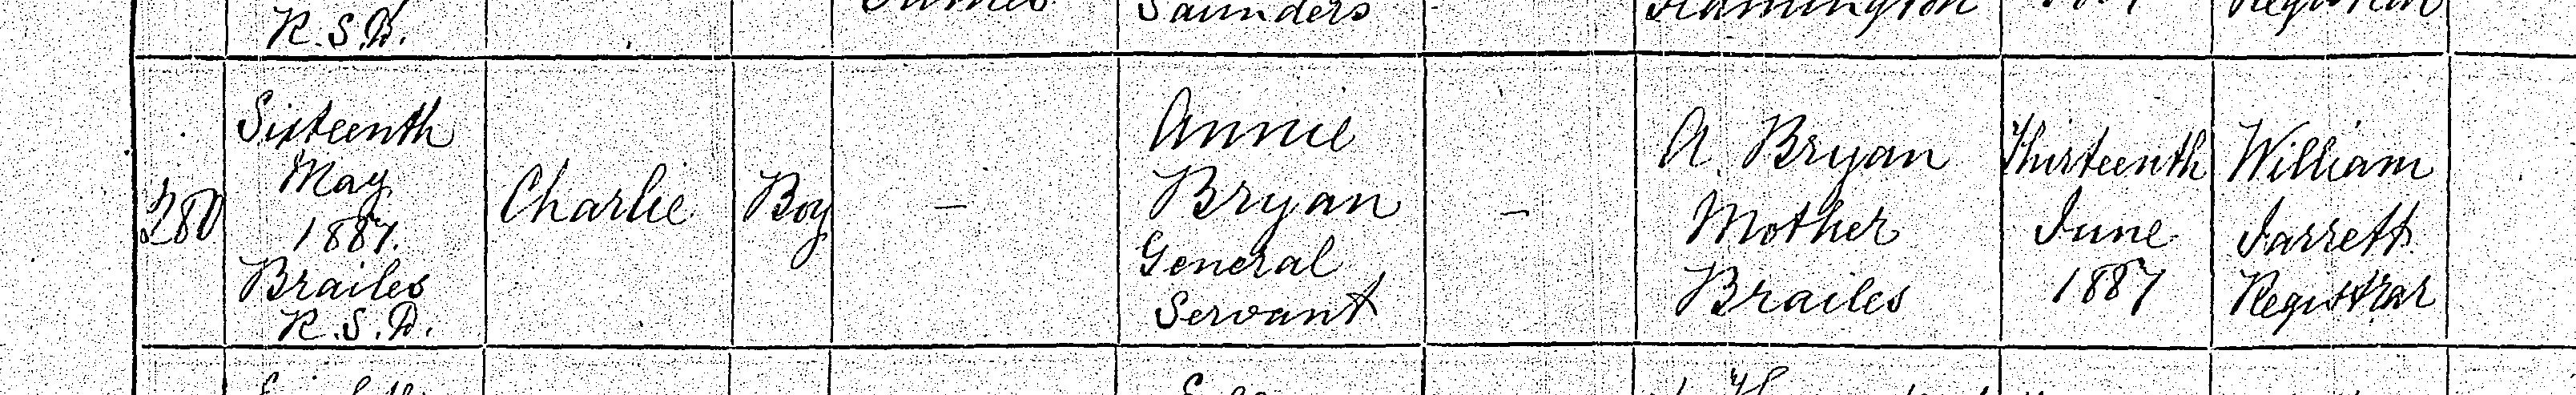 R.S.D.
Saunders
280
Sixteenth
May
1887.
Brailes
R.S.D.
Charlie
Boy
–
Annie
Bryan
General
Servant
–
A. Bryan
Mother
Brailes
Thirteenth
June
1887
William
Jarrett
Registrar